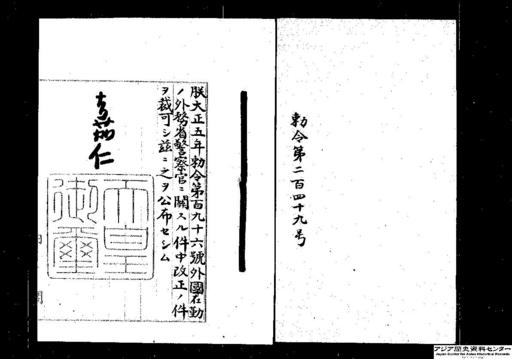 勅令第二百四十九号
朕大正五年勅令第百九十六號外國在勤
ノ外務省警察官ニ關スル件中改正ノ件
ヲ裁可シ茲ニ之ヲ公布セシム
嘉仁
天皇
御璽
アジア歴史資料センター
Japan Center for Asian Historical Records